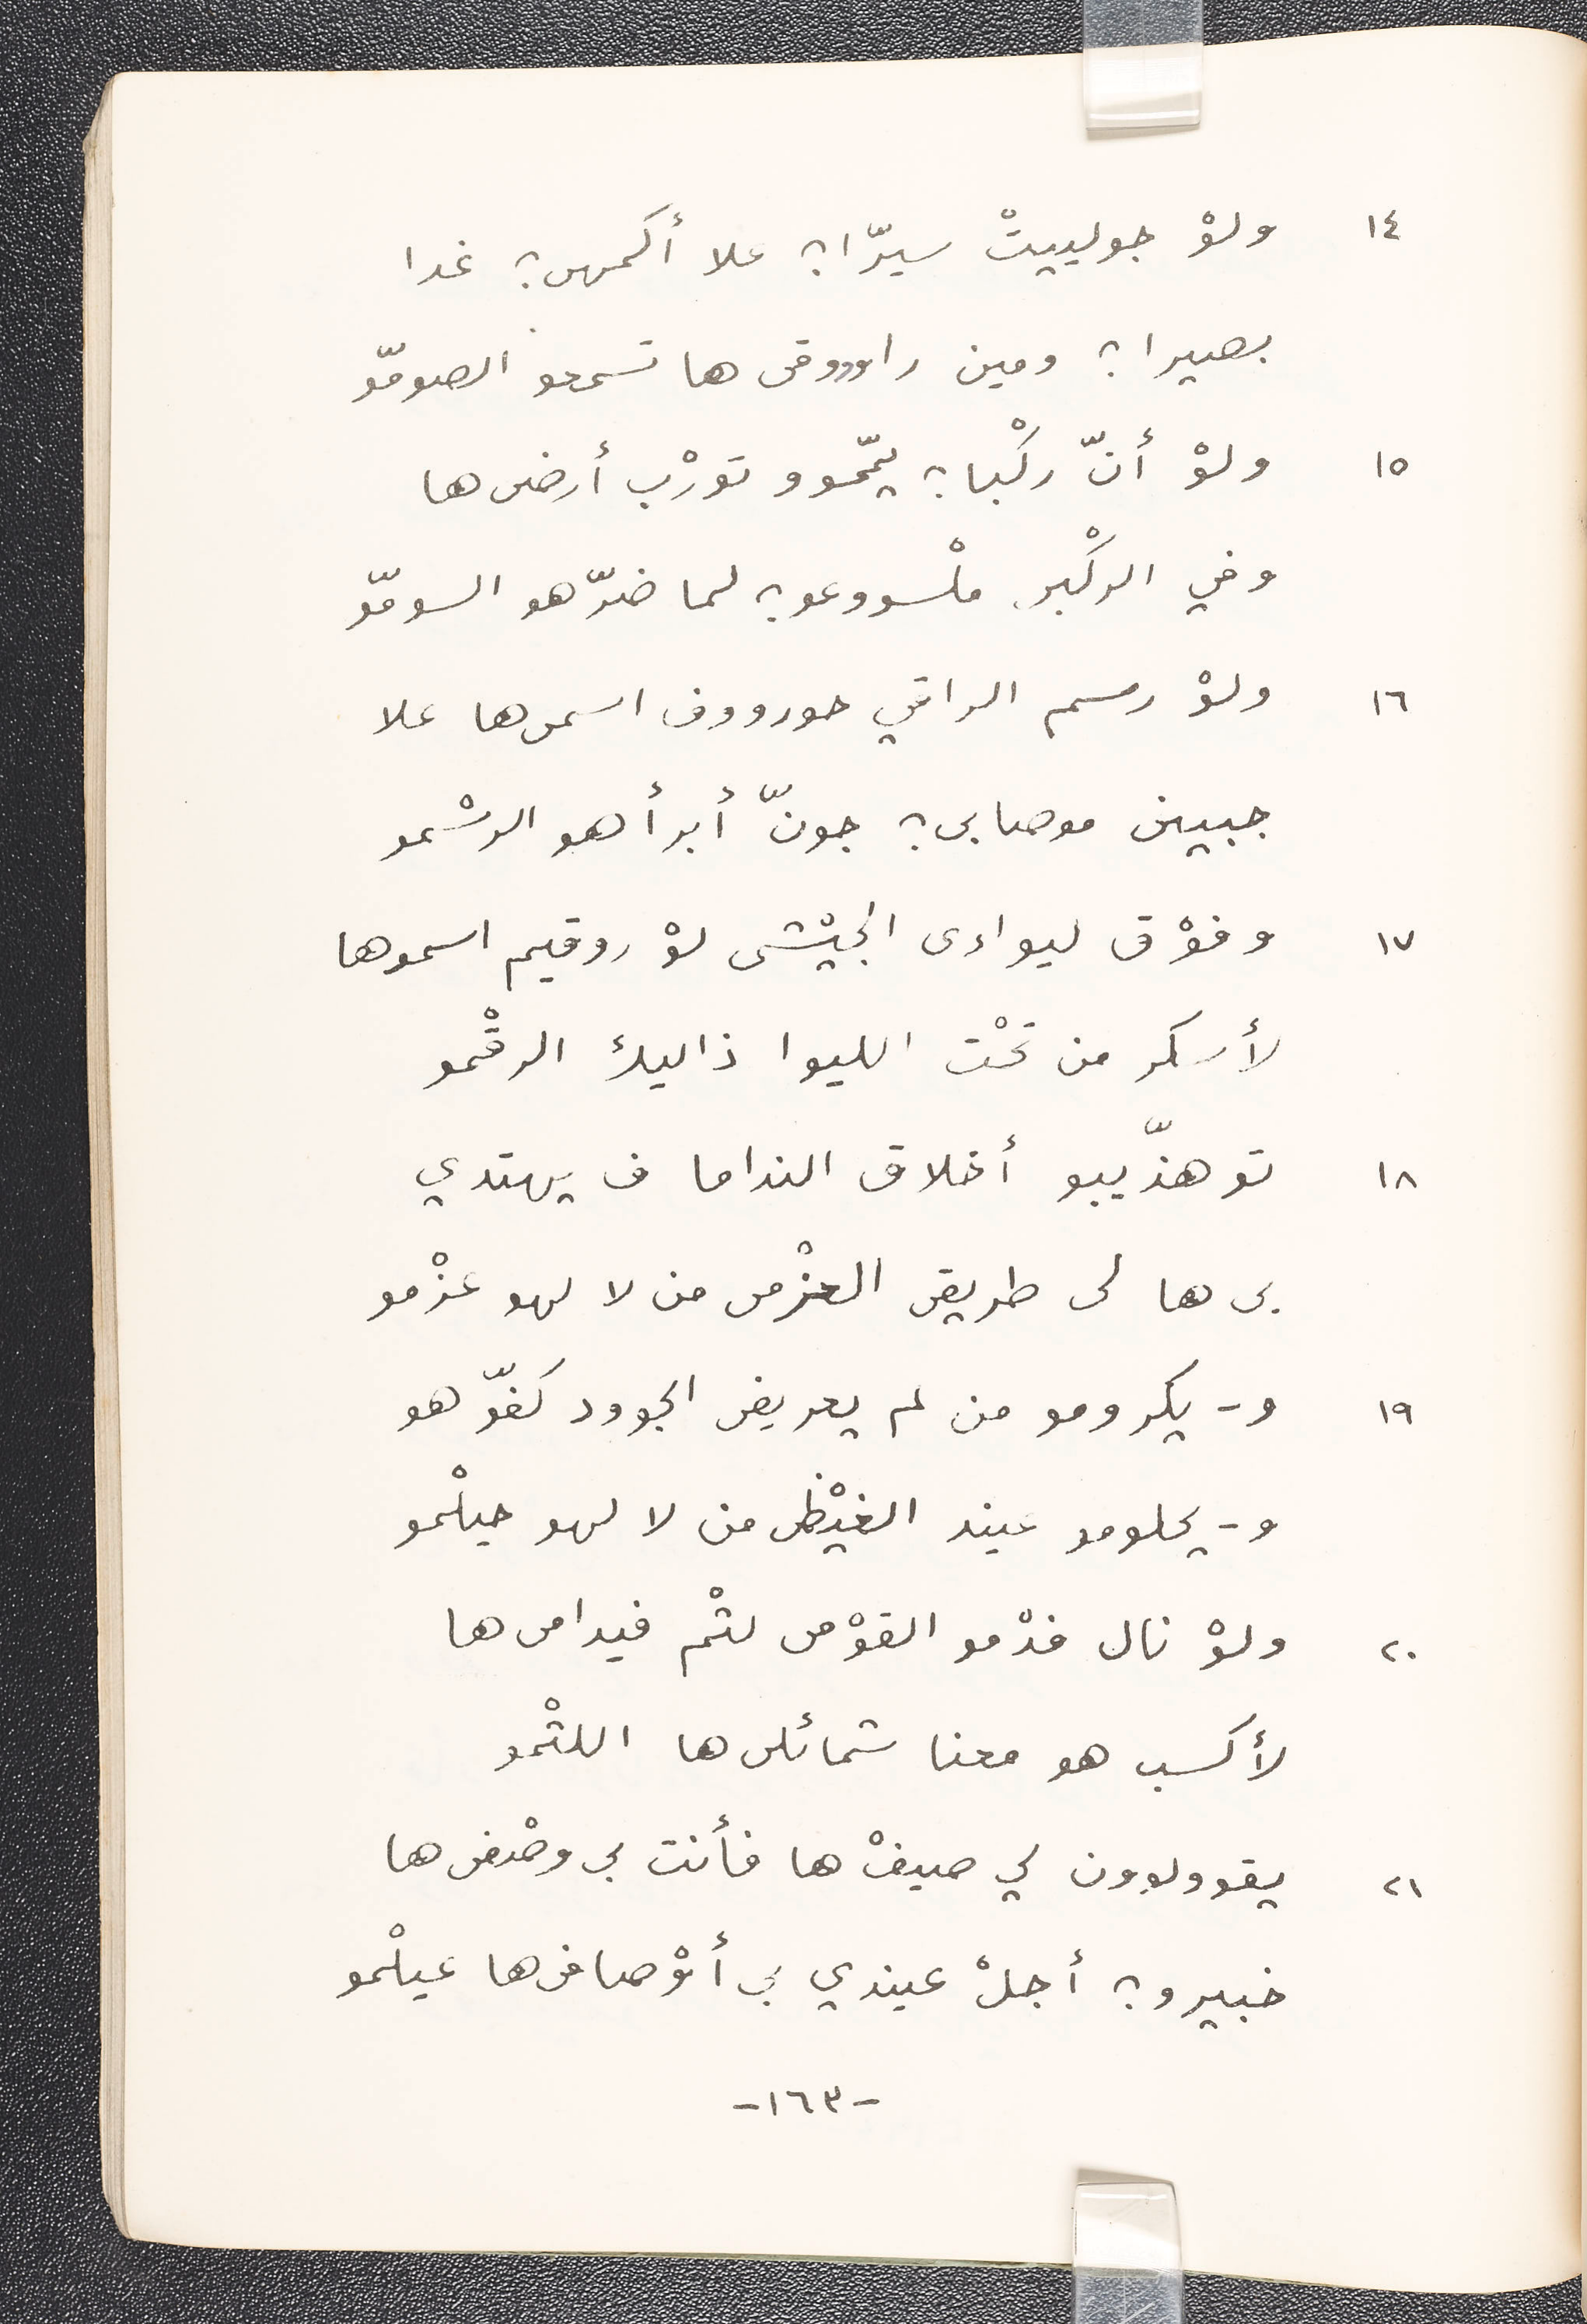 ١٤ ولوْ جولييتْ سيرّا؟ علا أكمهى؟ غدا
بصيرا؟ ومين راووقى ها تسمعو الصومّو
١٥ ولوْ أنّ ركْبا؟ يمّموو تورْب أرضى ها
وفي الركْبى ملْسووعو؟ لما ضرّهو السومّو
١٦ ولوْ رسم الراقي حورووف اسمى ها علا
جبيين موصابى؟ جونّ أبرأهو الرسْمو
١٧ وفوْق ليواءى الجيْشى لوْ روقيم اسموها
لأسكر من تحْت الليوا ذاليك الرقْمو
١٨ توهذّيبو أخلاق النداما ف يهتدي
بى ها لى طريقى العزْمى من لا لهو عزْمو
١٩ و- يكرومو من لم يعريف الجوود كفّو هو
و- يحلومو عيند الغيْظى من لا لهو حيلْمو
٢٠ ولوْ نال فدْمو القوْمى لثْم فيدامى ها
لأكسب هو معنا شمائلى ها اللثْمو
٢١ يقوولوون لي صيفْ ها فأنت بى وصْفى ها
خبيرو؟ أجلْ عيندي بى أوْصافى ها عيلْمو
-١٦٣-